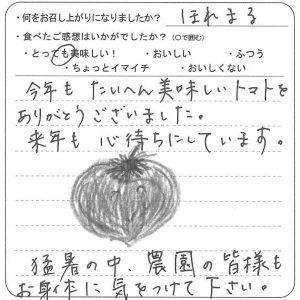 ・何をお召し上がりになりましたか？ ほれまる
・食べたご感想はいかがでしたか？（○で囲む）
・とっても美味しい！ ・おいしい ・ふつう
・ちょっとイマイチ ・おいしくない
今年も たいへん美味しいトマトを
ありがとうございました。
来年も 心待ちにしています。
猛暑の中、農園の皆様も
お身体に気をつけて下さい。